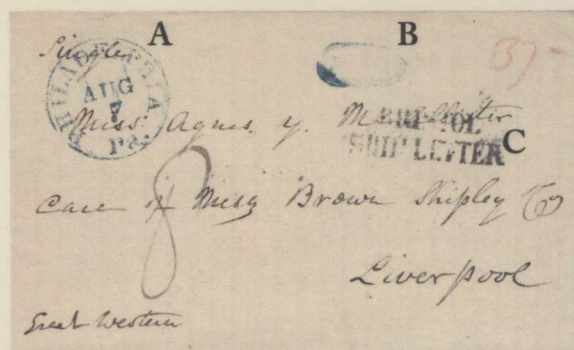 A
B
Single
PHILADELPHIA Pa.
AUG
7
Miss Agnes Y. M
BRISTOL
SHIP LETTER
C
8
Care of Mess Brown Shipley Co
Liverpool
Great Western